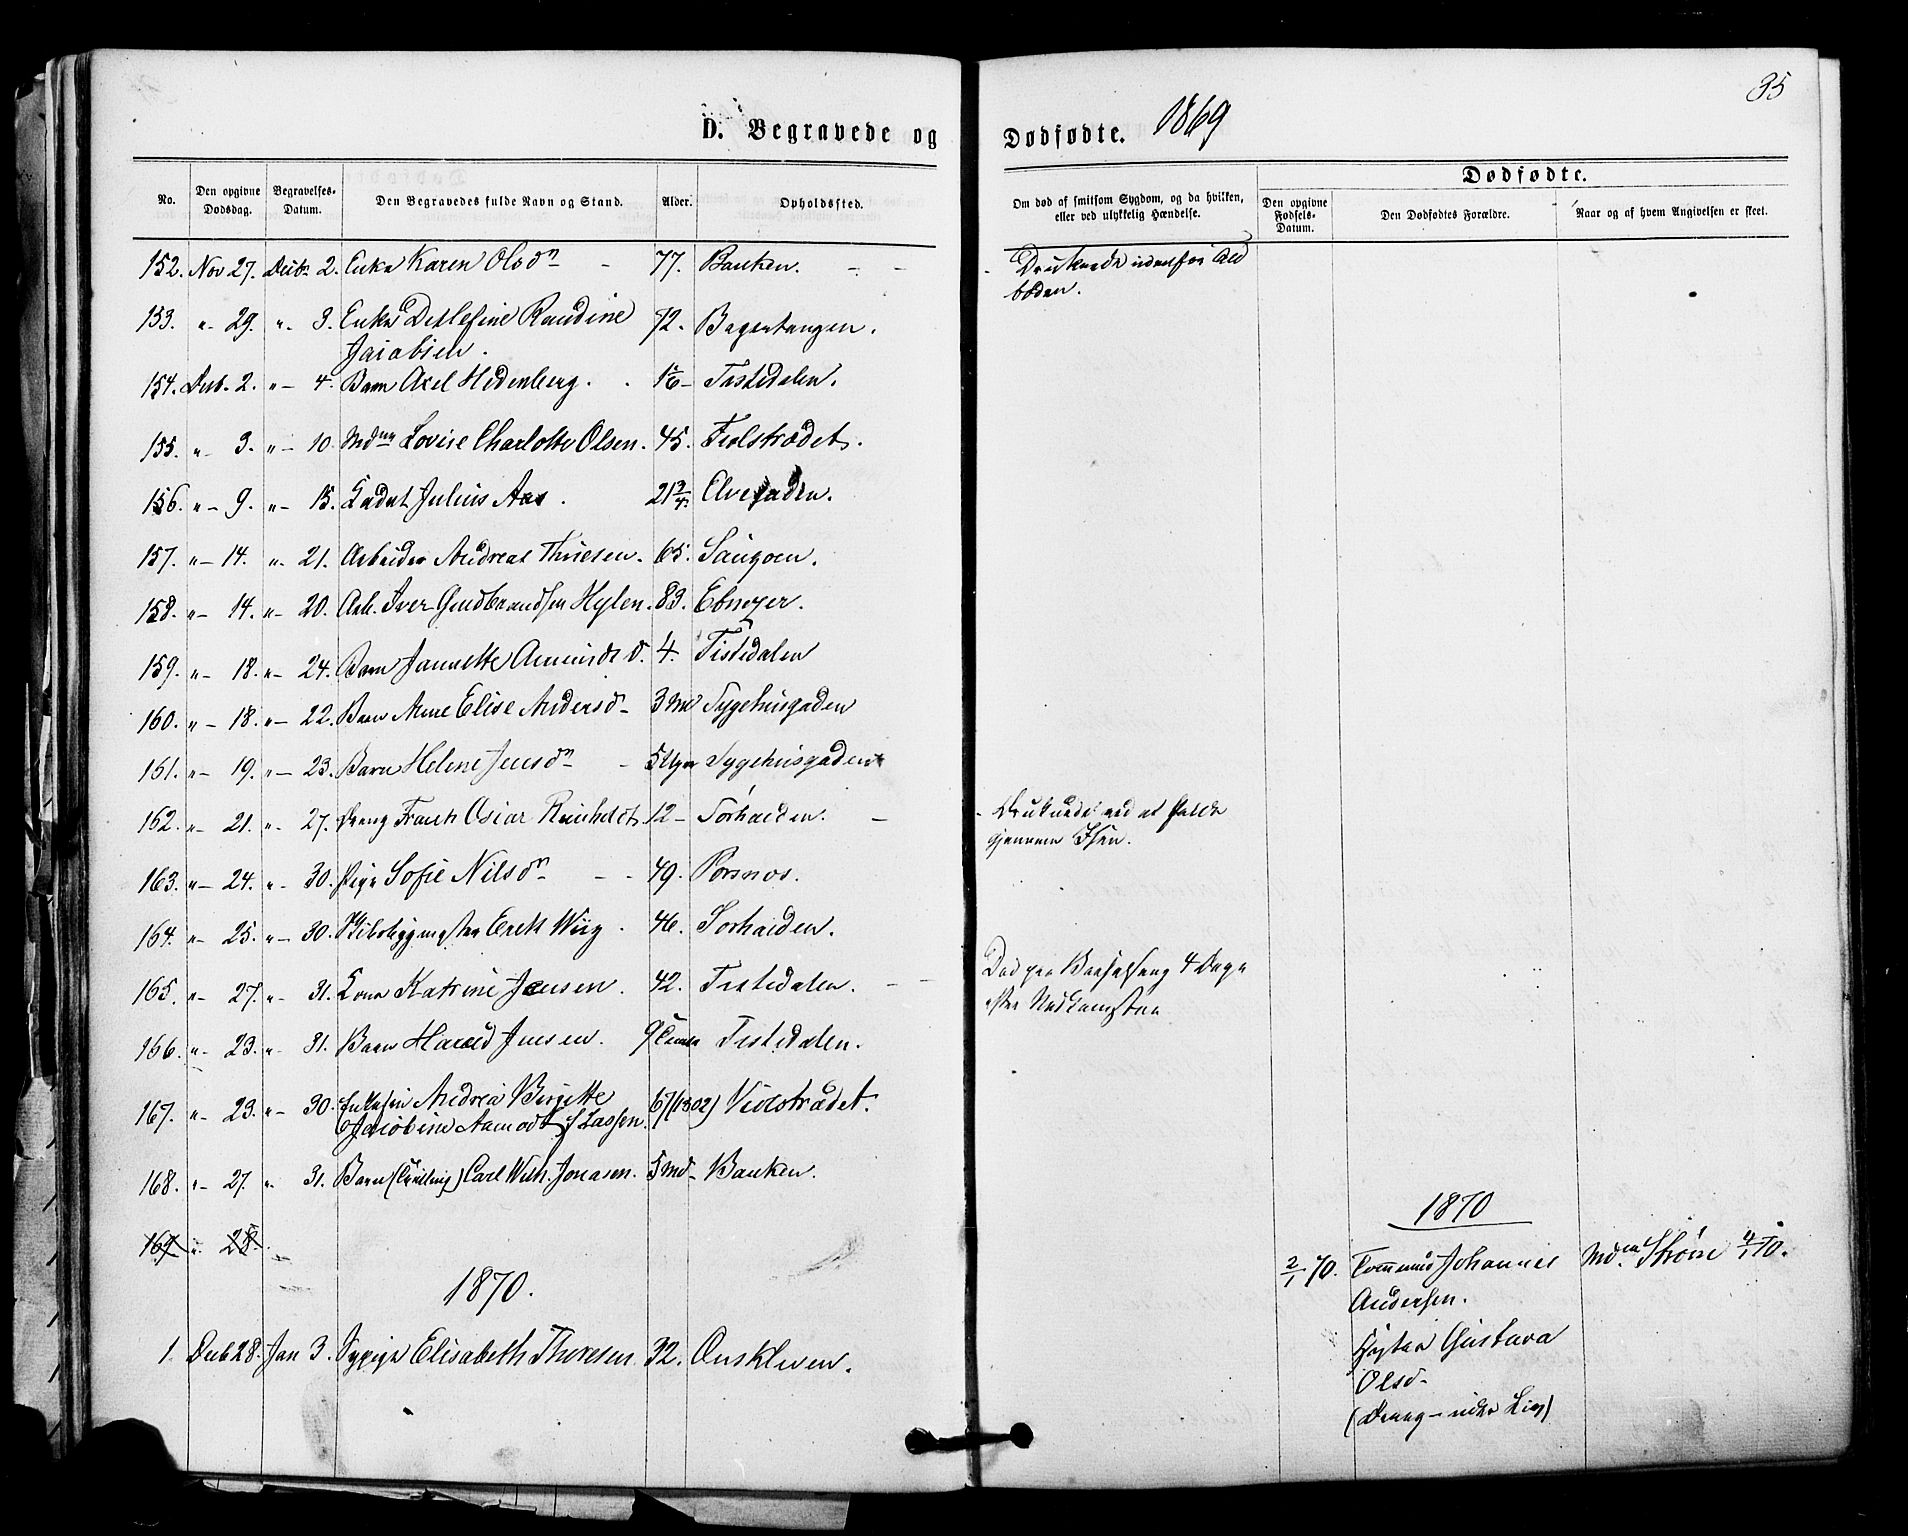 35
D. Begravede og Dødfødte. 1869
No.
Den opgivne Dødsdag.
Begravelses-Datum.
Den Begravedes fulde Navn og Stand.
Alder.
Opholdssted.
Om død af smitsom Sygdom, og da hvilken, eller ved ulykkelig Hændelse.
Dødfødte.
Den opgivne Fødsels-Datum.
Den Dødfødtes Forældre.
Naar og af hvem Angivelsen er skeet.
152. Nov 27. Decbr. 2. Enke Karen Olsdn - 77. Banken. - - - Druknede udenfor
153. " 29. " 3. Enke Detlefine Randine 72. Bagertangen.
Jacobsen.
154. Decb. 2. " - 4. Barn Axel Hedenberg. 1 5/6 - Tistedalen.
155. " - 3. " - 10. Mdme Lovise Charlotte Olsen. 45. Fiolstrædet.
156. " - 9. " - 15. Kadet Julius Aas. 21 3/4. Elvegaden.
157. " - 14. " - 21. Arbeider Andreas Thoresen. 65. Saugoen.
158. " - 14. " - 20. Arb. Iver Gudbrandsen Hylen. 83. Ebnezer.
159. " - 18. " - 24. Barn Jannette Amundsd. 4. Tistedalen
160. " - 18. " - 22. Barn Anne Elise Andersd - 3 Md Sygehusgaden
161. " - 19. " - 23. Barn Helene Jensdn - 5 Uger Sygehusgaden
162. " - 21. " - 27. Dreng Frants Oscar Reinholdt 12 - Sørhalden. - - Druknede ved at falde
gjennem Isen.
163. " - 24. " - 30. Pige Sofie Nilsdn - - 49. Porsnes.
164. " - 25. " - 30. Skibsbygmester Erik Wiig. 46. Sorhalden.
165. " - 27. " - 31. Kone Katrine Jensen. 42. Tistedalen. - - Død paa Barselseng 4 Dage
efter Nedkomsten
166. " - 23. " - 31. Barn Harald Jensen. 9 Timer Tistedalen.
167. " - 23. " - 30. Enkefru Andrea Birgitte 67 (1802) Violstrædet.
Jacobine Aamodt f Lassen.
168. " - 27. " 31. Barn (Tvilling) Carl Wilh. Jonasen. 5 Md - Banken.
169 " 28.
1870.
1. Decb 28. Jan 3. Sypige Elisabeth Thoresen 32. Ouskleven.
1870
2/1 70. Tømmermd Johannes Mdm Strøm 4/1 70.
Andersen.
Hustru Gustava
Olsd -
(Dreng - uden Liv)